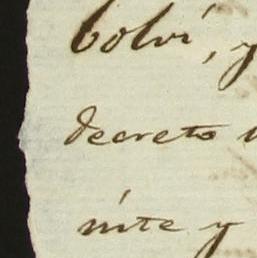 bolví, y
decreto
inte y